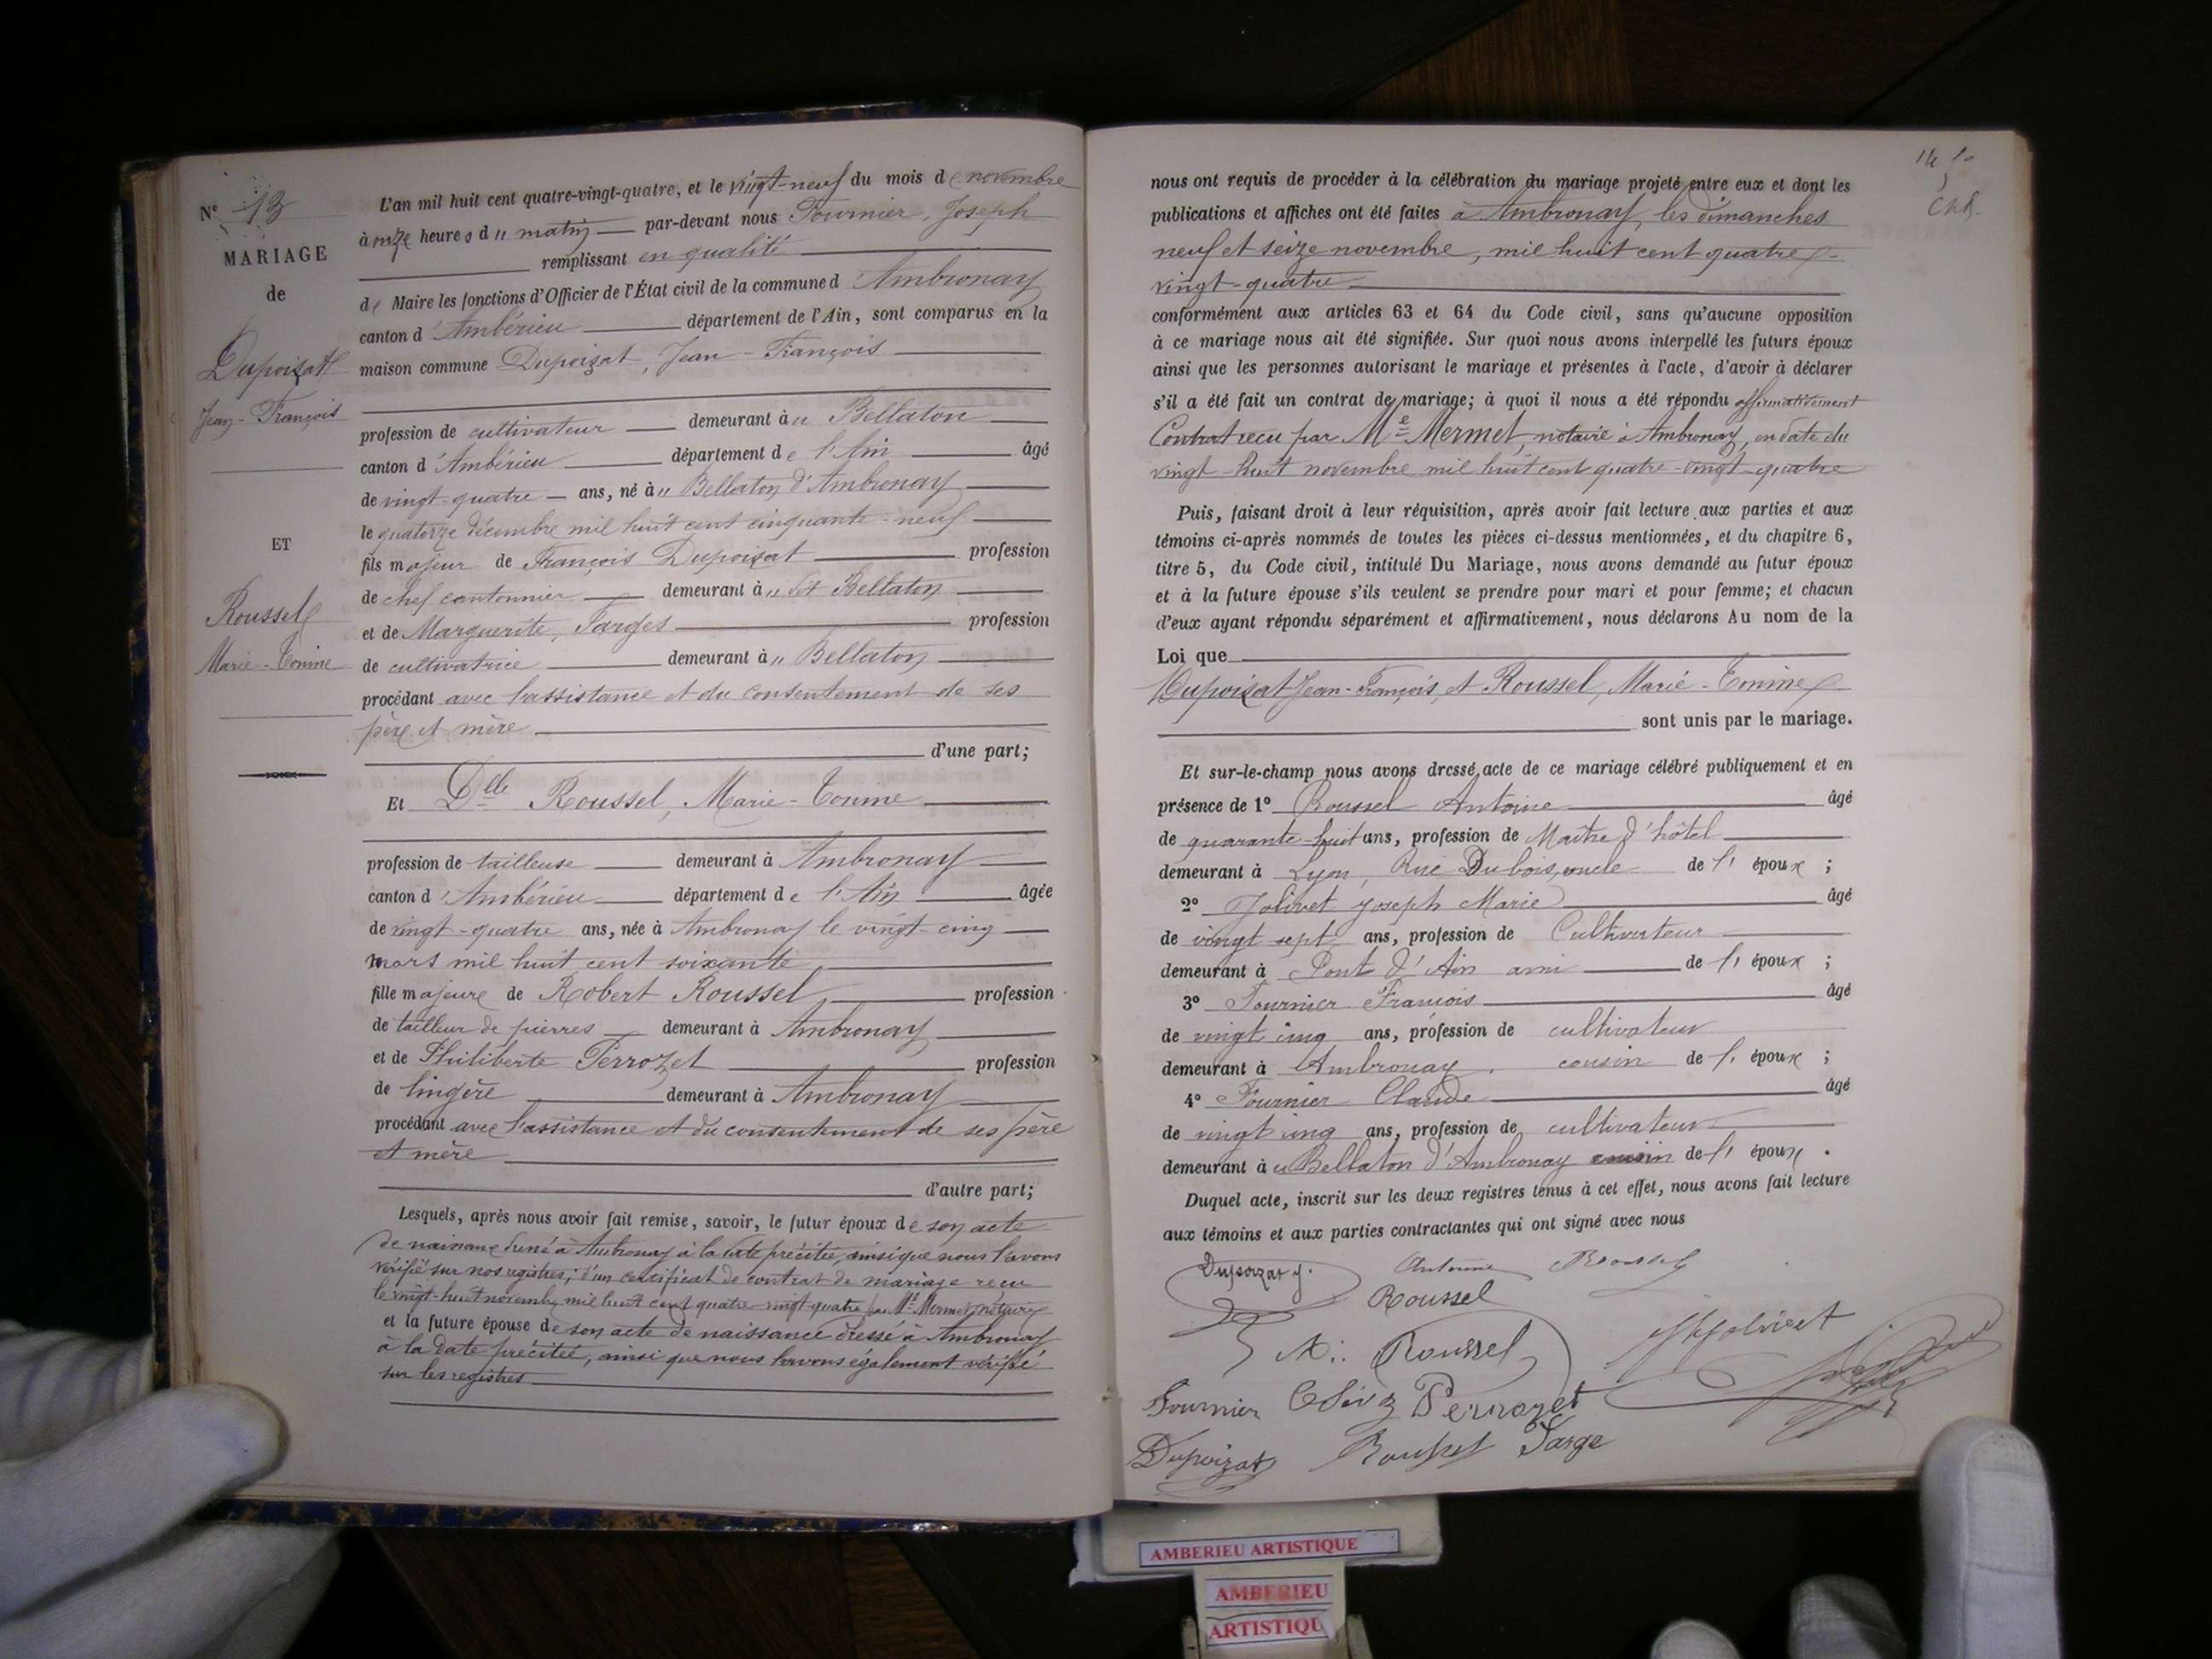 N° 13
MARIAGE
de
Dupoizat
Jean-François
ET
Roussel
Marie-Tonine
L'an mil huit cent quatre-vingt-quatre, et le vingt-neuf du mois de novembre
à onze heures du matin par-devant nous Fournier, Joseph
remplissant en qualité
de Maire les fonctions d'Officier de l'État civil de la commune d'Ambronay
canton d'Ambérieu département de l'Ain, sont comparus en la
maison commune Dupoizat, Jean-François
profession de cultivateur demeurant à Bellaton
canton d'Ambérieu département de l'Ain âgé
de vingt-quatre ans, né à Bellaton d'Ambronay
le quatorze décembre mil huit cent cinquante-neuf
fils majeur de François Dupoizat profession
de chef cantonnier demeurant à dit Bellaton
et de Marguerite, Farges profession
de cultivatrice demeurant à Bellaton
procédant avec l'assistance et du consentement de ses
père et mère
d'une part;
Et Dlle Roussel, Marie-Tonine
profession de tailleuse demeurant à Ambronay
canton d'Ambérieu département de l'Ain âgée
de vingt-quatre ans, née à Ambronay le vingt-cinq
mars mil huit cent soixante
fille majeure de Robert Roussel profession
de tailleur de pierres demeurant à Ambronay
et de Philiberte Perrozet profession
de lingère demeurant à Ambronay
procédant avec l'assistance et du consentement de ses père
et mère
d'autre part;
Lesquels, après nous avoir fait remise, savoir, le futur époux de son acte
de naissance dressé à Ambronay à la date précitée, ainsi que nous l'avons
vérifié sur nos registres; d'un certificat de contrat de mariage reçu
le vingt-huit novembre mil huit cent quatre-vingt-quatre par Me Mermet, notaire
et la future épouse de son acte de naissance dressé à Ambronay
à la date précitée, ainsi que nous l'avons également vérifié
sur les registres
nous ont requis de procéder à la célébration du mariage projeté entre eux et dont les
publications et affiches ont été faites à Ambronay, les dimanches
neuf et seize novembre, mil huit cent quatre-
vingt-quatre
conformément aux articles 63 et 64 du Code civil, sans qu'aucune opposition
à ce mariage nous ait été signifiée. Sur quoi nous avons interpellé les futurs époux
ainsi que les personnes autorisant le mariage et présentes à l'acte, d'avoir à déclarer
s'il a été fait un contrat de mariage; à quoi il nous a été répondu affirmativement
Contrat reçu par Me Mermet, notaire à Ambronay, en date du
vingt-huit novembre mil huit cent quatre-vingt-quatre
Puis, faisant droit à leur réquisition, après avoir fait lecture aux parties et aux
témoins ci-après nommés de toutes les pièces ci-dessus mentionnées, et du chapitre 6,
titre 5, du Code civil, intitulé Du Mariage, nous avons demandé au futur époux
et à la future épouse s'ils veulent se prendre pour mari et pour femme; et chacun
d'eux ayant répondu séparément et affirmativement, nous déclarons Au nom de la
Loi que
Dupoizat Jean-François, et Roussel, Marie-Tonine
sont unis par le mariage.
Et sur-le-champ nous avons dressé acte de ce mariage célébré publiquement et en
présence de 1° Roussel Antoine âgé
de quarante-huit ans, profession de Maître d'hôtel
demeurant à Lyon, Rue Dubois, oncle de l' époux ;
2° Jolivet Joseph Marie âgé
de vingt sept ans, profession de Cultivateur
demeurant à Pont d'Ain ami de l' époux ;
3° Fournier François âgé
de vingt cinq ans, profession de cultivateur
demeurant à Ambronay. cousin de l' époux ;
4° Fournier Claude âgé
de vingt cinq ans, profession de cultivateur
demeurant à Bellaton d'Ambronay cousin de l' époux .
Duquel acte, inscrit sur les deux registres tenus à cet effet, nous avons fait lecture
aux témoins et aux parties contractantes qui ont signé avec nous
Dupoizat J. Antoine Roussel
Roussel
M. Roussel Jolivet
Fournier Perrozet
Dupoizat Roussel Farge
AMBERIEU ARTISTIQUE
AMBERIEU
ARTISTIQU